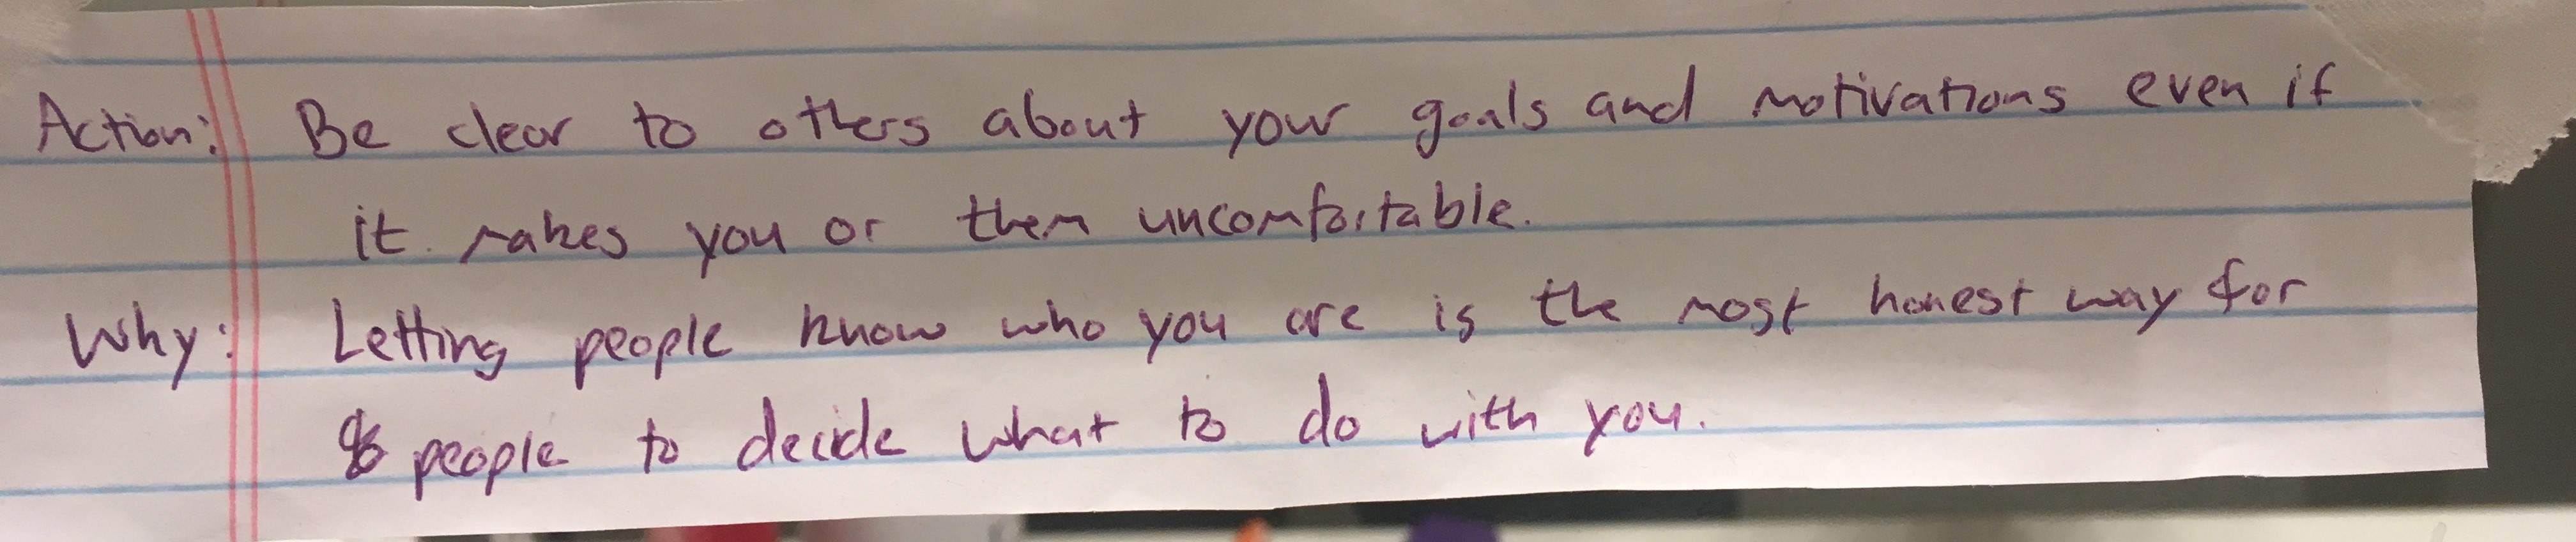 Action: Be clear to others about your goals and motivations even if
it makes you or them uncomfortable.
Why: Letting people know who you are is the most honest way for
people to decide what to do with you.